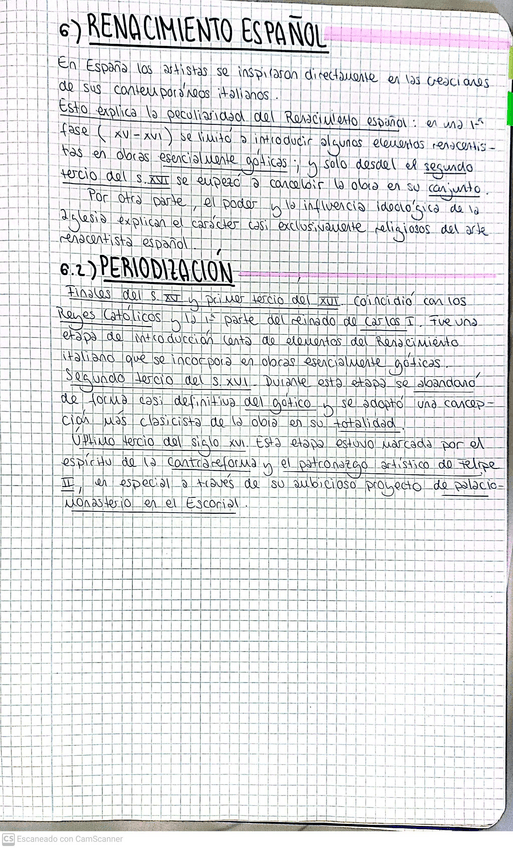 6) RENACIMIENTO ESPAÑOL
En España los artistas se inspiraron directamente en las creaciones
de sus contemporáneos italianos.
Esto explica la peculiaridad del Renacimiento español: en una 1ª
fase (XV-XVI) se limitó a introducir algunos elementos renacentis-
tas en obras esencialmente góticas; y solo desdel el segundo
tercio del s. XVI se empezó a concebir la obra en su conjunto.
Por otra parte, el poder y la influencia ideológica de la
iglesia explican el carácter casi exclusivamente religiosos del arte
renacentista español.
6.2) PERIODIZACIÓN
Finales del s. XV y primer tercio del XVI. Coincidió con los
Reyes Católicos y la 1ª parte del reinado de Carlos I. Fue una
etapa de introducción lenta de elementos del Renacimiento
italiano que se incorpora en obras esencialmente góticas.
Segundo tercio del s. XVI. Durante esta etapa se abandonó
de forma casi definitiva del gótico y se adoptó una concep-
ción más clasicista de la obra en su totalidad.
Último tercio del siglo XVI. Esta etapa estuvo marcada por el
espíritu de la Contrareforma y el patronazgo artístico de Felipe
II, en especial a través de su ambicioso proyecto de palacio-
monasterio en el Escorial.
CS Escaneado con CamScanner